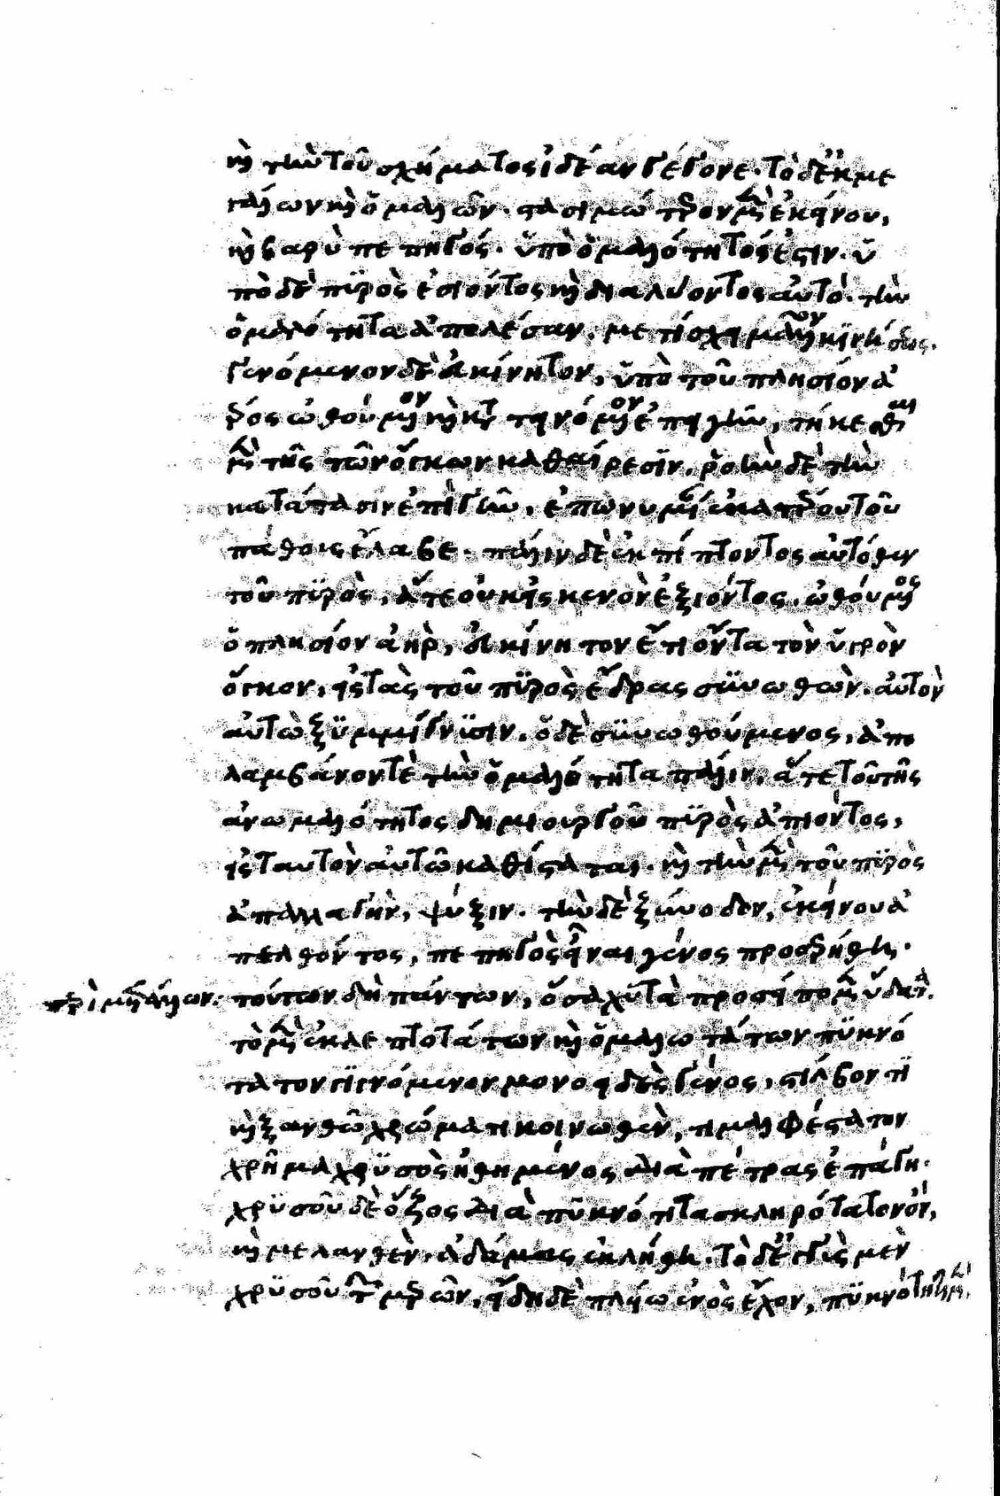 καὶ τὴν τοῦ σχήματος ἰδέαν γέγονε. τὸ δ' ἐκ με
γάλων καὶ ὁμαλῶν. στασιμώτερον μὲν ἐκείνου,
καὶ βαρὺ πεπηγός. ὑπὸ ὁμαλότητός ἐστιν. ὑ
πὸ δὲ πυρὸς εἰσιόντος καὶ διαλύοντος αὐτὸ. τὴν
ὁμαλότητα ἀπολέσαν. μετίσχει μᾶλλον κινήσεως.
γενόμενον δὲ εὐκίνητον, ὑπὸ τοῦ πλησίον ἀ
έρος ὠθούμενον καὶ κατατεινόμενον ἐπὶ γῆν, τήκεσθαι
μὲν τὴν τῶν ὄγκων καθαίρεσιν. ῥοὴν δὲ τὴν
κατάτασιν ἐπὶ γῆν, ἐπωνυμίαν ἑκατέρου τοῦ
πάθους ἔλαβε. πάλιν δὲ ἐκπίπτοντος αὐτόθεν
τοῦ πυρὸς, ἅτε οὐκ εἰς κενὸν ἐξιόντος. ὠθούμενος
ὁ πλησίον ἀὴρ, εὐκίνητον ἔτι ὄντα τὸν ὑγρὸν
ὄγκον, εἰς τὰς τοῦ πυρὸς ἕδρας συνωθῶν. αὐτὸν
αὐτῷ ξυμμίγνυσιν. ὁ δὲ συνωθούμενος, ἀπο
λαμβάνον τὲ τὴν ὁμαλότητα πάλιν, ἅτε τοῦ τῆς
ἀνωμαλότητος δημιουργοῦ πυρὸς ἀπιόντος,
εἰς ταυτὸν αὐτῷ καθίσταται. καὶ τὴν μὲν τοῦ πυρὸς
ἀπαλλαγὴν, ψύξιν. τὴν δὲ ξύνοδον, ἐκείνου ἀ
πελθόντος, πεπηγὸς εἶναι γένος προσερρήθη.
περὶ μετάλλων. τούτων δὴ πάντων, ὅσα χυτὰ προσείπομεν ὕδατα.
τὸ μὲν ἐκ λεπτοτάτων καὶ ὁμαλωτάτων πυκνό
τατον γιγνόμενον μονοειδὲς γένος, στίλβοντι
καὶ ξανθῷ χρώματι κοινωθὲν, τιμαλφέστατον
χρῆμα χρυσὸς ἠθημένος διὰ πέτρας ἐπάγη.
χρυσοῦ δὲ ὄζος διὰ πυκνότητα σκληρότατον ὂν,
καὶ μελανθὲν, ἀδάμας ἐκλήθη. τὸ δ' ἐγγὺς μὲν
χρυσοῦ τῶν μερῶν, εἴδη δὲ πλείω ἑνὸς ἔχον, πυκνότητι μὲν